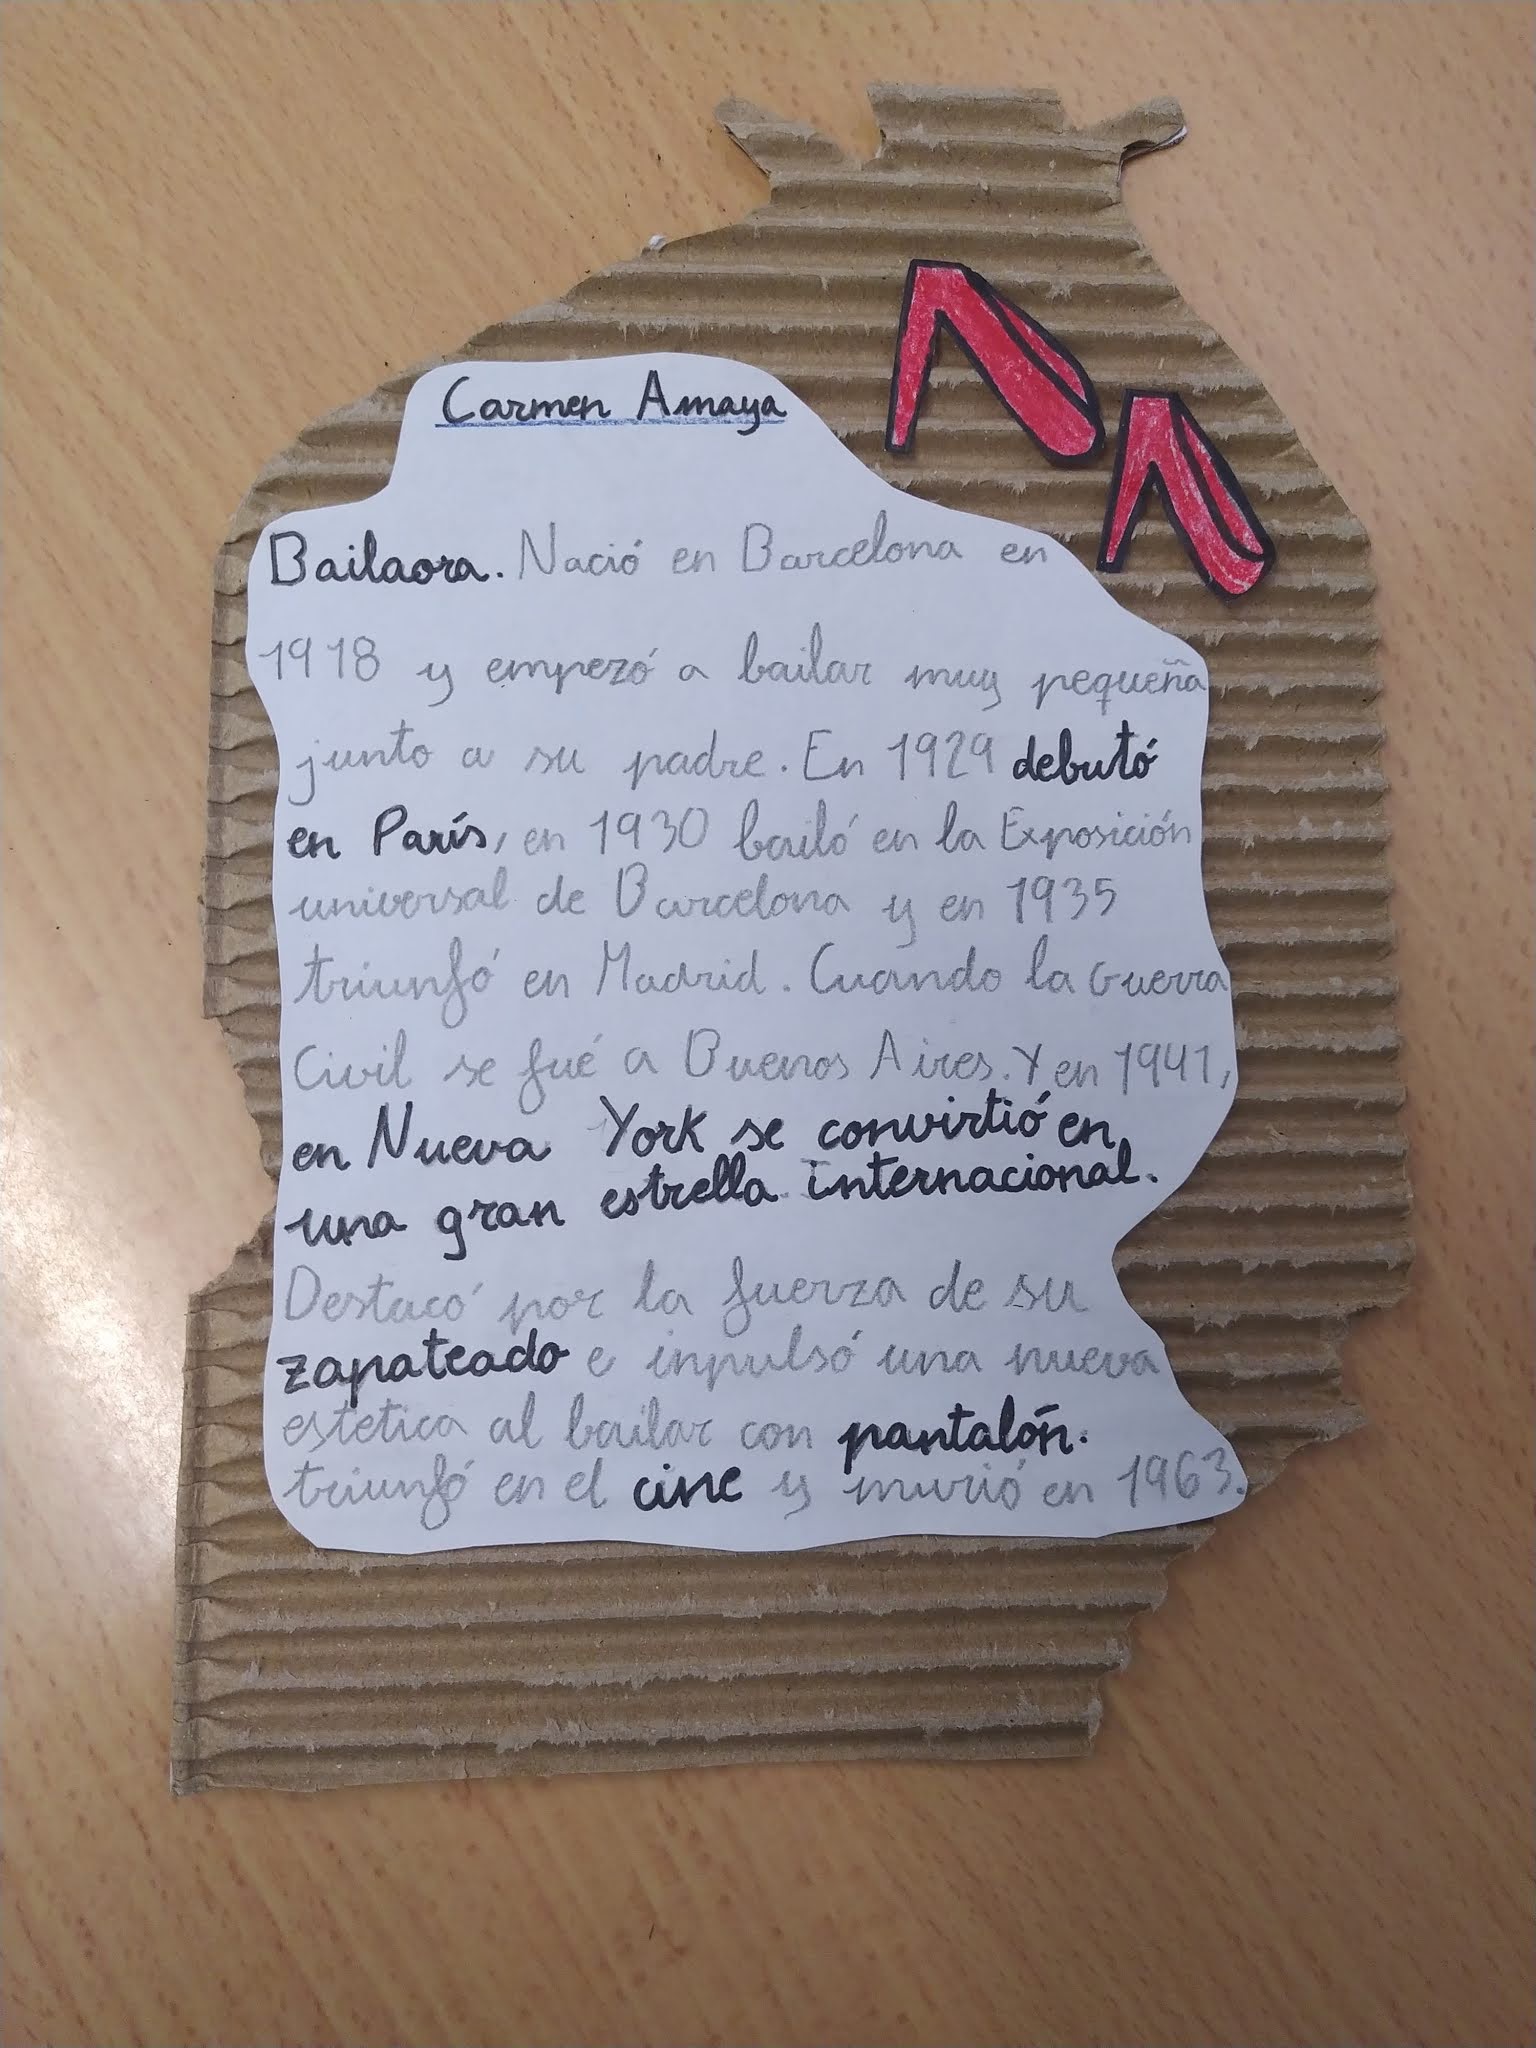 Carmen Amaya
Bailaora. Nació en Barcelona en
1918 y empezó a bailar muy pequeña
junto a su padre. En 1929 debutó
en París, en 1930 bailó en la Exposición
universal de Barcelona y en 1935
triunfó en Madrid. Cuando la Guerra
Civil se fué a Buenos Aires. Y en 1941,
en Nueva York se convirtió en
una gran estrella internacional.
Destacó por la fuerza de su
zapateado e inpulsó una nueva
estetica al bailar con pantalón.
triunfó en el cine y murió en 1963.